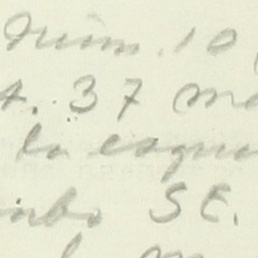 Núm. 10
. 37 m
la esqui
mbo SE.